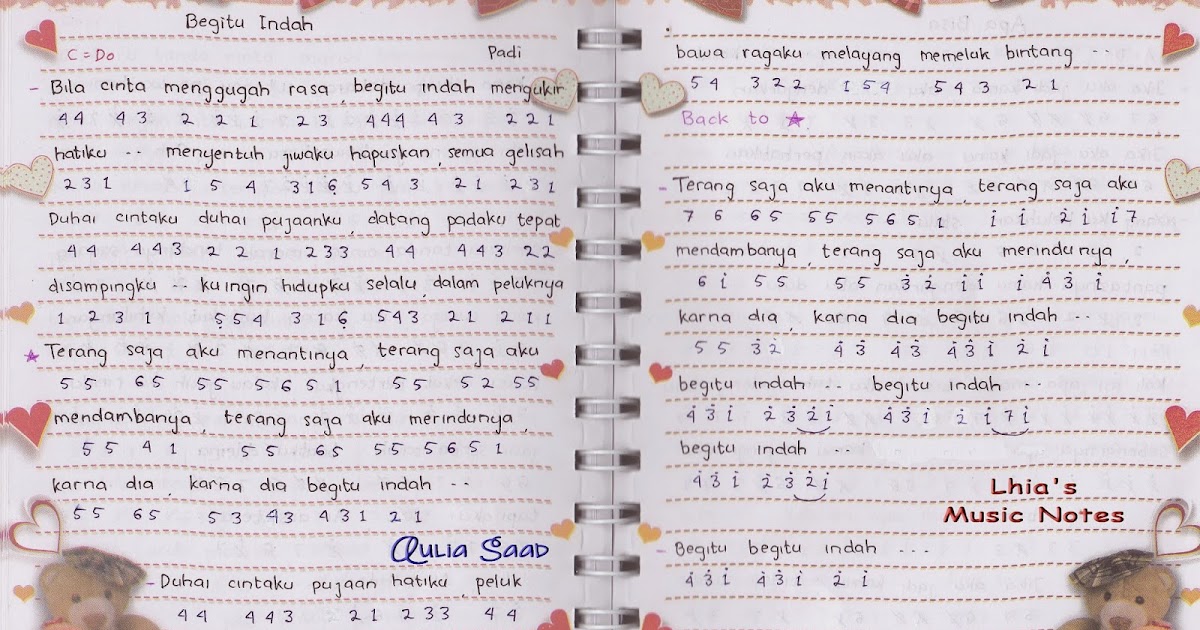 Begitu Indah
C = Do Padi
- Bila cinta menggugah rasa, begitu indah mengukir
44 43 2 2 1 23 444 43 221
hatiku -- menyentuh jiwaku hapuskan, semua gelisah
231 1 5 4 316̣ 543 21 231
Duhai cintaku duhai pujaanku, datang padaku tepat
44 443 2 2 1 233 44 443 22
disampingku -- ku ingin hidupku selalu, dalam peluknya
1 2 3 1 5̣54 316̣ 543 21 211
☆ Terang saja aku menantinya, terang saja aku
55 65 55 5651 55 52 55
mendambanya, terang saja aku merindunya,
55 41 55 65 55 5651
karna dia, karna dia begitu indah --
55 65 53 43 431 21
Qulia Saad
- Duhai cintaku pujaan hatiku, peluk
44 443 21 233 44
bawa ragaku melayang memeluk bintang --
54 322 154 543 21
Back to ☆
- Terang saja aku menantinya, terang saja aku
76 65 55 5651 i̇ i̇ 2̇i̇ i̇7
mendambanya, terang saja aku merindunya,
6i̇ 55 55 3̇2̇ i̇i̇ i̇4̇3̇i̇
karna dia, karna dia begitu indah --
55 3̇2̇ 4̇3̇ 4̇3̇ 4̇3̇i̇ 2̇i̇
begitu indah -- begitu indah --
4̇3̇i̇ 2̇3̇2̇i̇ 4̇3̇i̇ 2̇i̇7i̇
begitu indah --
4̇3̇i̇ 2̇3̇2̇i̇
Lhia's
Music Notes
- Begitu begitu indah ---
4̇3̇i̇ 4̇3̇i̇ 2̇i̇